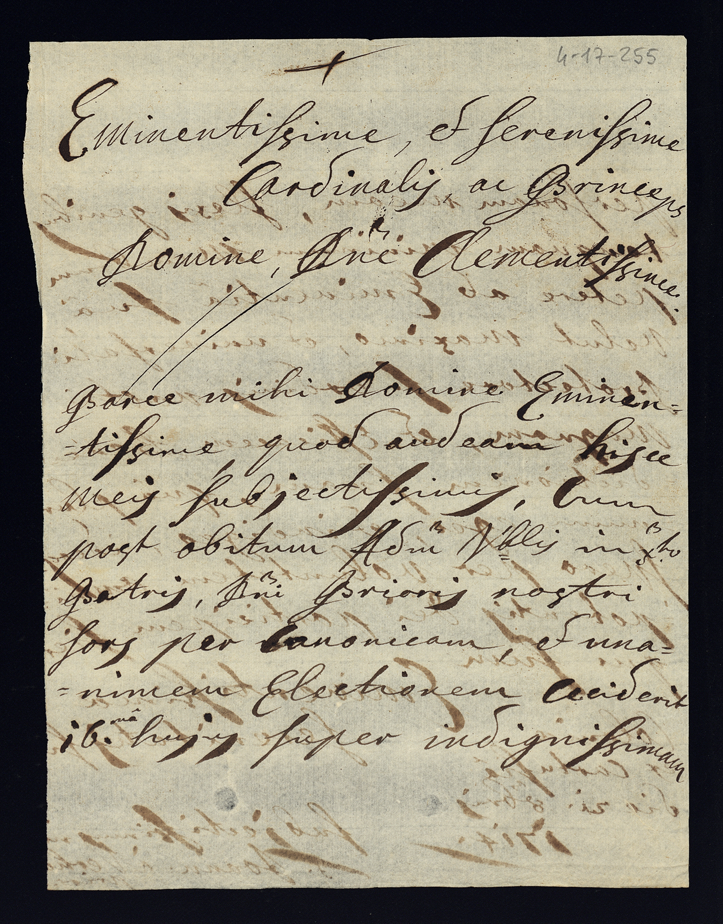 4-17-255
Eminentissime, et Serenissime
Cardinalis ac Princeps
Domine, Dñe Clementissime.
Parce mihi Domine Eminen=
=tissime, quod audeam hisce
meis subjectissimis, Cum
post obitum Adm̃ Vbllis in xto
Patris, Dñi Prioris nostri
sors per Canonicam, et una=
=nimem Electionem acciderit
16.mâ hujus super indignissimam